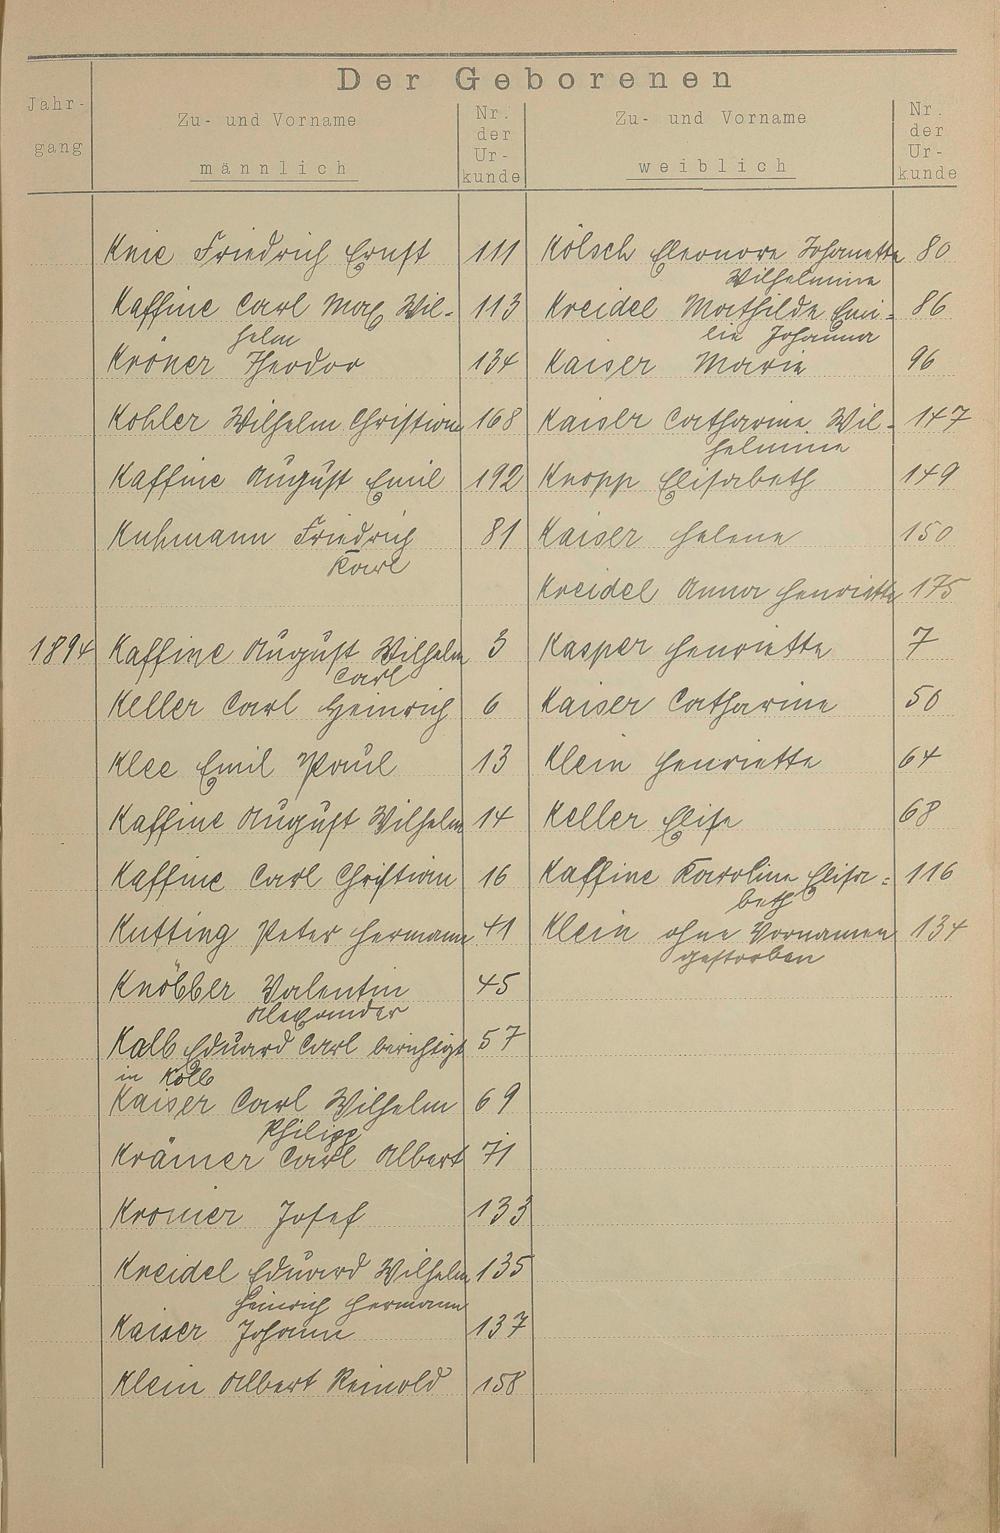 Der Geborenen
Jahr-
gang
Zu- und Vorname
männlich
Nr.
der
Ur-
kunde
Zu- und Vorname
weiblich
Nr.
der
Ur-
kunde
Knie Friedrich Ernst 111 Kölsch Eleonore Johanette 80
Wilhelmine
Kaffine Carl Max Wil- 113 Kreidel Mathilde Emi- 86
helm lie Johanna
Kröner Theodor 134 Kaiser Marie 96
Kohler Wilhelm Christian 168 Kaiser Catharine Wil- 147
helmine
Kaffine August Emil 192 Knopp Elisabeth 149
Kuhmann Friedrich 81 Kaiser Helene 150
Karl
Kreidel Anna Henriette 175
1894 Kaffine August Wilhelm 3 Kasper Henriette 7
Carl
Keller Carl Heinrich 6 Kaiser Catharine 50
Klee Emil Paul 13 Klein Henriette 64
Kaffine August Wilhelm 14 Keller Elise 68
Kaffine Carl Christian 16 Kaffine Karoline Elisa- 116
beth
Kutting Peter Hermann 41 Klein ohne Vornamen 134
gestorben
Knöbber Valentin 45
Alexander
Kalb Eduard Carl berichtigt 57
in Kolb
Kaiser Carl Wilhelm 69
Philipp
Krämer Carl Albert 71
Kromer Josef 133
Kreidel Eduard Wilhelm 135
Heinrich Hermann
Kaiser Johann 137
Klein Albert Reinold 158